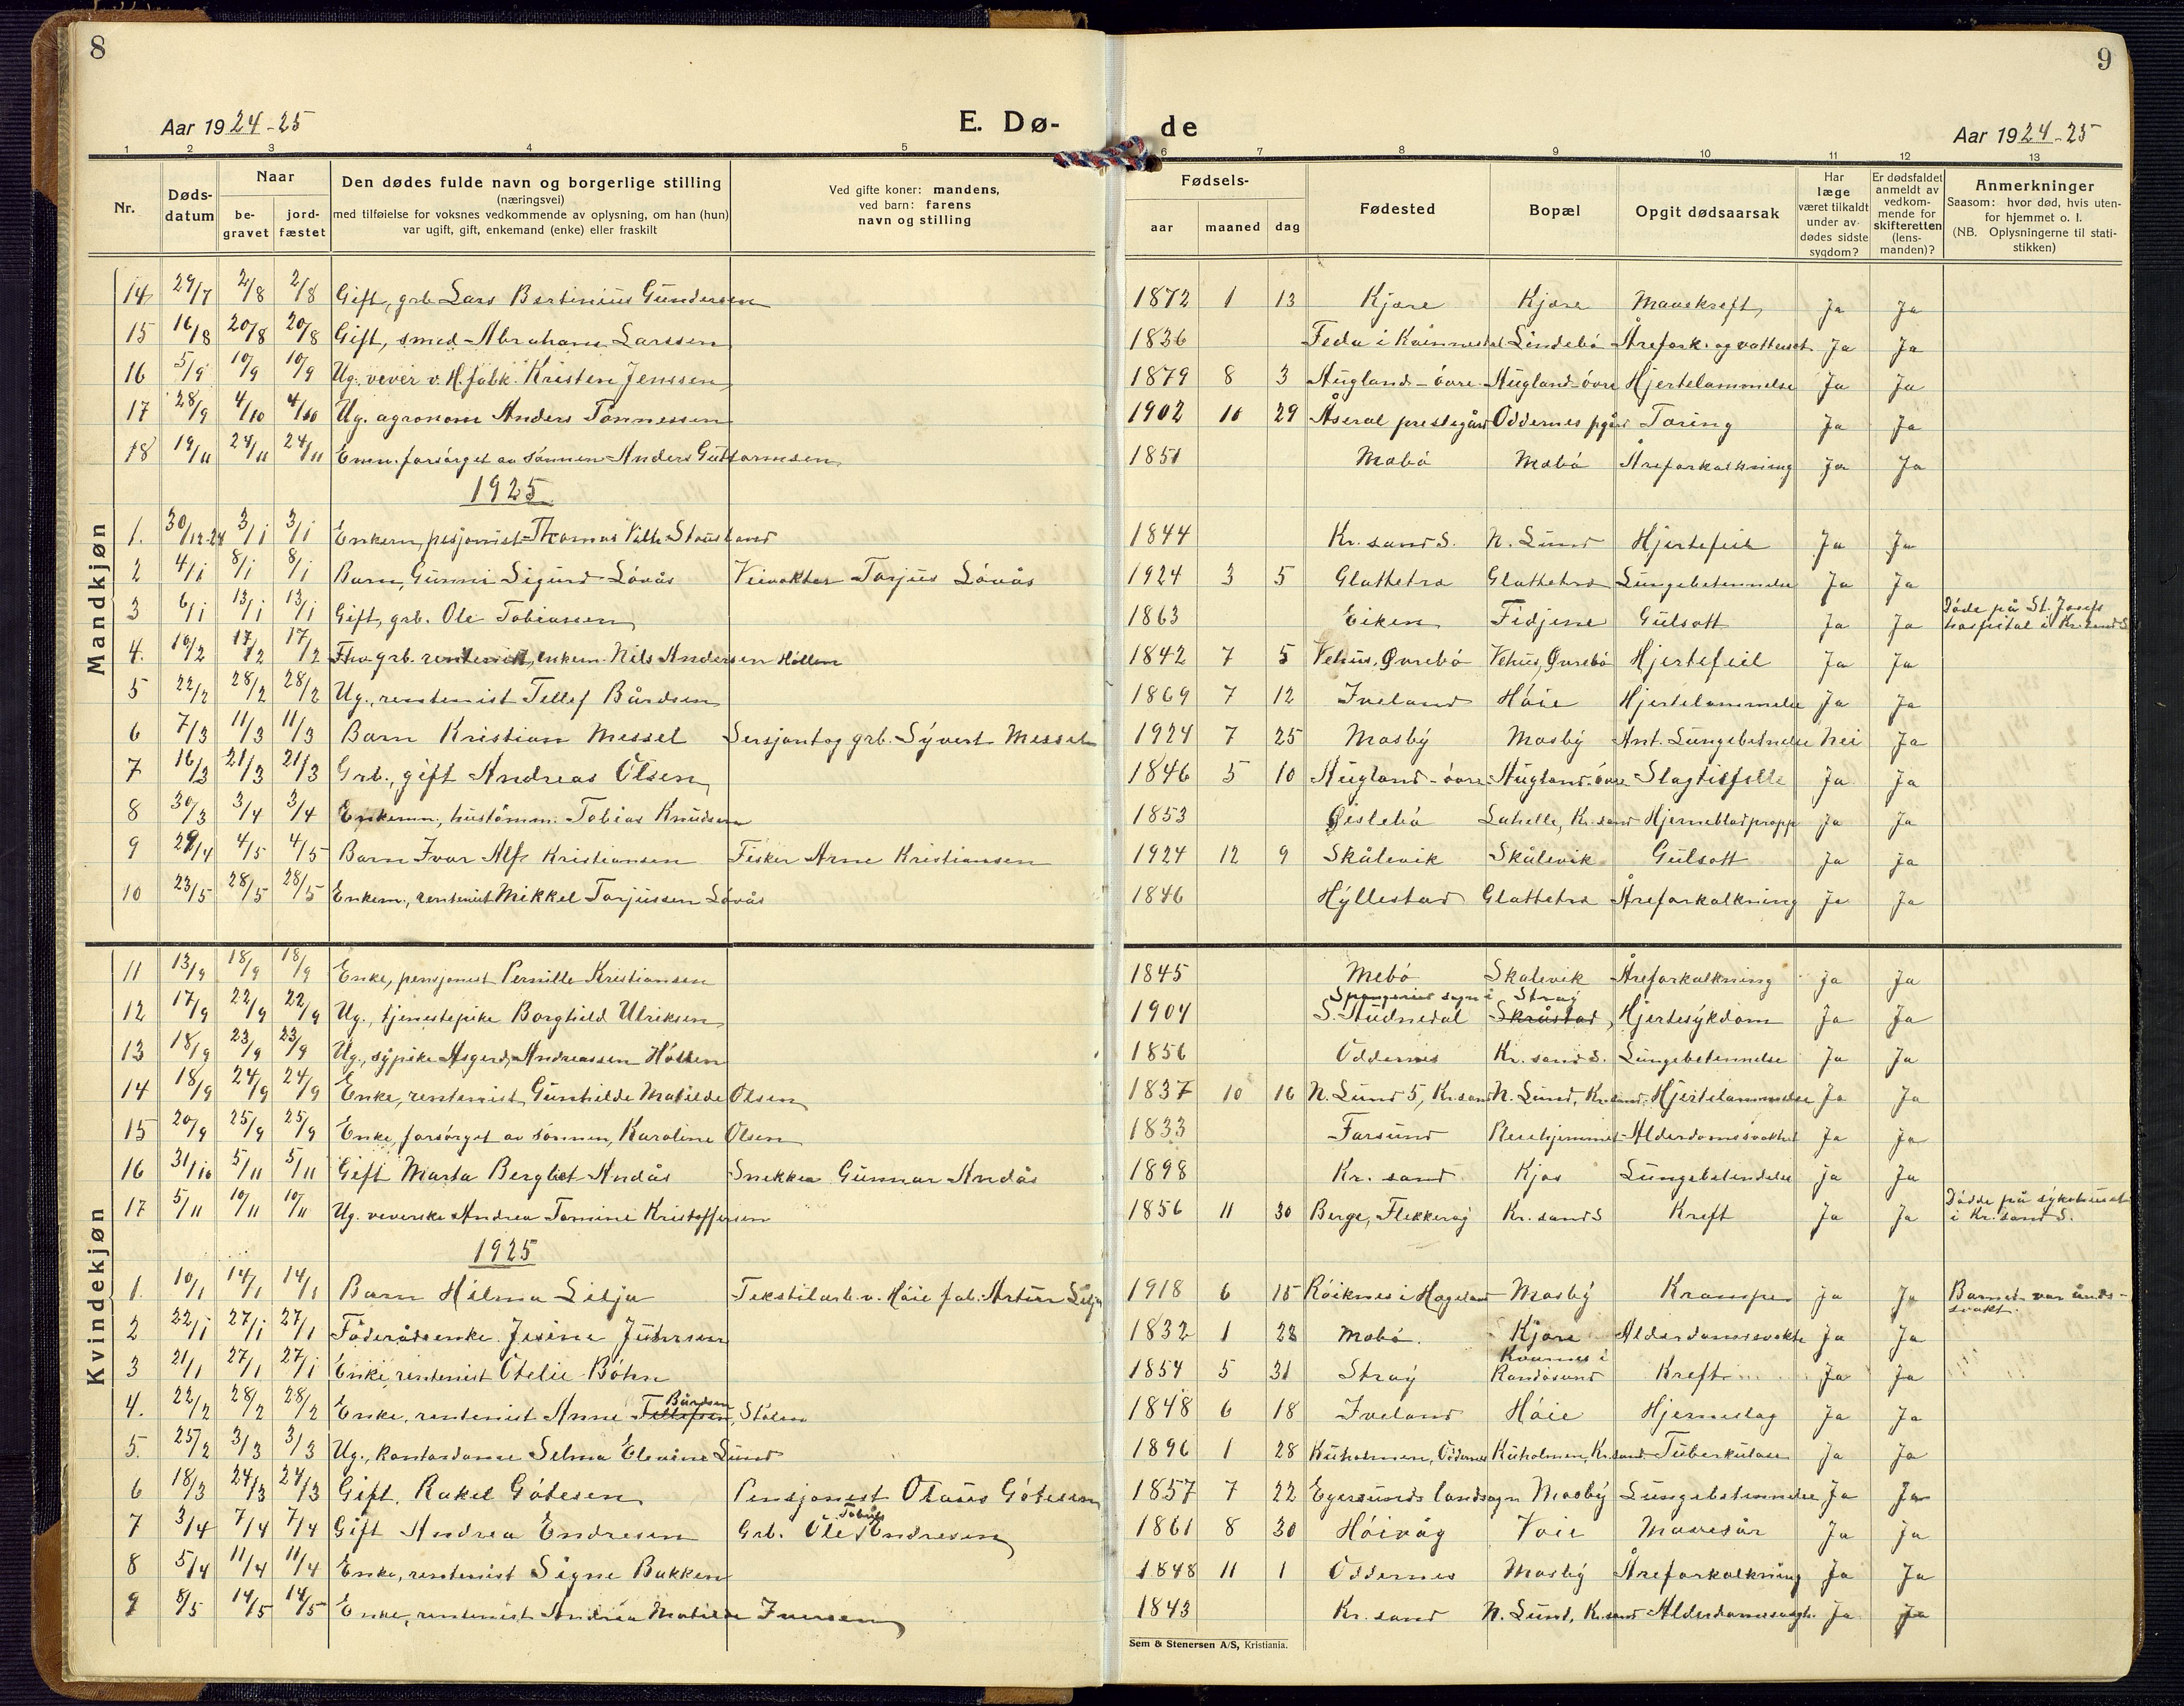 8
Aar 1924-25
E. Dø-
1 2 3 4 5
Nr.
Døds-datum
Naar
be-gravet
jord-fæstet
Den dødes fulde navn og borgerlige stilling
(næringsvei)
med tilføielse for voksnes vedkommende av oplysning, om han (hun)
var ugift, gift, enkemand (enke) eller fraskilt
Ved gifte koner: mandens,
ved barn: farens
navn og stilling
de
9
Aar 1924-25
6 7 8 9 10 11 12 13
Fødsels-
aar maaned dag
Fødested
Bopæl
Opgit dødsaarsak
Har læge været tilkaldt under av-dødes sidste sygdom?
Er dødsfaldet anmeldt av vedkom-mende for skifteretten (lens-manden)?
Anmerkninger
Saasom: hvor død, hvis uten-
for hjemmet o. l.
(NB. Oplysningerne til stati-
stikken)
Mandkjøn
14 29/7 2/8 2/8 Gift, grb. Lars Bertinius Gundersen 1872 1 13 Kjøre Kjøre Mavekreft, Ja Ja
15 16/8 20/8 20/8 Gift, smed Abraham Larssen 1836 Feda i Kvinnesdal Lindebø Årefork. og vattersot Ja Ja
16 5/9 10/9 10/9 Ug. vever v. H. fabk. Kristen Jenssen 1879 8 3 Augland-övre Augland-övre Hjertelammelse Ja Ja
17 28/9 4/10 4/10 Ug. agronom Anders Tønnessen 1902 10 29 Åseral prestegård Oddernes pgård Tæring Ja Ja
18 19/11 24/11 24/11 Emn. forsörget av sönnen Anders Guttormsen 1851 Mebö Mebö Åreforkalkning Ja Ja
1925
1. 30/12-24 3/1 3/1 Enkem, pesjonist Thomas Vilh. Stausland 1844 Kr.sand S. N. Lund Hjertefeil Ja Ja
2 4/1 8/1 8/1 Barn, Gunni Sigurd Lövås Veivokter Torjus Lövås 1924 3 5 Glattetra Glattetra Lungebetennelse Ja Ja
3 6/1 13/1 13/1 Gift, grb. Ole Tobiassen 1863 Eiken Fidjene Gulsott Ja Ja Döde på St. Josefs hospital i Kr.sand S
4. 10/2 17/2 17/2 Fhv. grb. rentenist, enkem. Nils Andersen Hollen 1842 7 5 Vehus, Øvrebö Vehus, Øvrebö Hjertefeil Ja Ja
5 22/2 28/2 28/2 Ug., rentenist Tellef Bårdsen 1869 7 12 Iveland Höie Hjertelammelse Ja Ja
6 7/3 11/3 11/3 Barn Kristian Messel Sersjant og grb. Syvert Messel 1924 7 25 Mosby Mosby Ant. Lungebetnelse Nei Ja
7 16/3 21/3 21/3 Grb., gift Andreas Olsen 1846 5 10 Augland-övre Augland-övre Slagtilfelle Ja Ja
8 30/3 3/4 3/4 Enkemn., hustömm. Tobias Knudsen 1853 Øislebö Lahelle, Kr.sand Hjerneblodpropp Ja Ja
9 29/4 4/5 4/5 Barn Ivar Alf Kristiansen Fisker Arne Kristiansen 1924 12 9 Skålevik Skålevik Gulsott Ja Ja
10 23/5 28/5 28/5 Enkem., rentenist Mikkel Torjussen Lövås 1846 Hyllestad Glattetra Åreforkalkning Ja Ja
Kvindekjøn
11 13/9 18/9 18/9 Enke, pensjonist Pernille Kristiansen 1845 Mebö Skålevik Åreforkalkning Ja Ja
12 17/9 22/9 22/9 Ug., tjenestepike Borghild Ulriksen 1904 Spangereid sogn i S. Audnedal Stray Skråstad Hjertesykdom Ja Ja
13 18/9 23/9 23/9 Ug., sypike Asgerd Andreassen Hollen 1856 Oddernes Kr.sand S. Lungebetennelse Ja Ja
14 18/9 24/9 24/9 Enke, rentenist Gunhilde Matilde Olsen 1837 10 16 N. Lund 5, Kr.sand N. Lund, Kr.sand. Hjertelammelse Ja Ja
15 20/9 25/9 25/9 Enke, forsörget av sönnen, Karoline Olsen 1833 Farsund Pleiehjemmet Alderdomssvakhet Ja Ja
16 31/10 5/11 5/11 Gift Marta Bergliot Andås Snekker Gunnar Andås 1898 Kr.sand Kjos Lungebetendelse Ja Ja
17 5/11 10/11 10/11 Ug. veverske Andrea Tomine Kristoffersen 1856 11 30 Berge, Flekkeröy Kr.sand S Kreft Ja Ja Dödde på sykehuset i Kr.sand S.
1925
1. 10/1 14/1 14/1 Barn Hilma Lilja Tekstilarb. v. Höie fab. Artur Lilja 1918 6 15 Röiknes i Hægeland Mosby Kramper Ja Ja Barnet var åndssvakt.
2 22/1 27/1 27/1 Föderådsenke Jesine Juhrsen 1832 1 28 Mebö. Kjøre Alderdomssvakh Ja Ja
3 21/1 27/1 27/1 Enke, rentenist Otelie Böhn 1854 5 31 Stray Kvarnes i Randösund Kreft Ja Ja
4. 22/2 28/2 28/2 Enke, rentenist Anne Tellefsen Bårdsen, Stölen 1848 6 18 Iveland Höie Hjerneslag Ja Ja
5. 25/2 3/3 3/3 Ug., kontordame Selma Elevine Lund 1896 1 28 Kuholmen, Oddernes Kuholmen, Kr.sand Tuberkulose Ja Ja
6 18/3 24/3 24/3 Gift. Rakel Götesen Pensjonist Olaus Götesen 1857 7 22 Egersunds landsogn Mosby Lungebetennelse Ja Ja
7 3/4 7/4 7/4 Gift Andrea Endresen Grb. Ole Tobias Endresen 1861 8 30 Höivåg Voie Mavesår Ja Ja
8 5/4 11/4 11/4 Enke, rentenist Signe Bakken 1848 11 1 Oddernes Mosby Åreforkalkning Ja Ja
9 8/5 14/5 14/5 Enke, rentenist Andrea Matilde Iversen 1843 Kr.sand N. Lund, Kr.sand Alderdomssvagh. Ja Ja
Sem & Stenersen A/S, Kristiania.